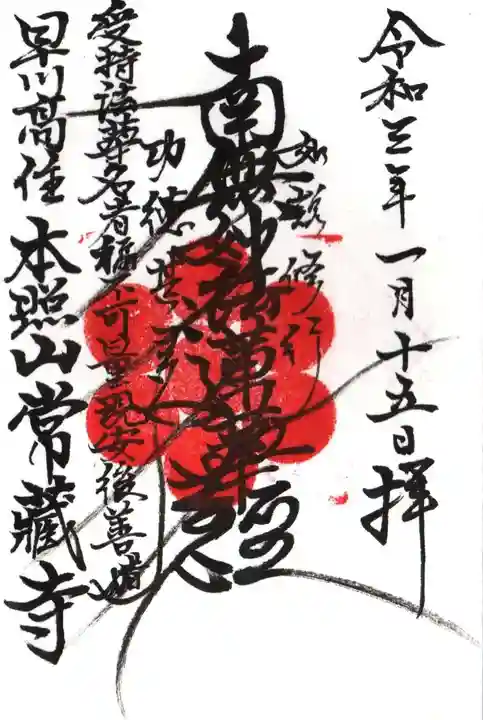 令和三年一月十五日拝
如説修行
南無妙法蓮華經
功徳甚
受持法華名者福不可量現安後善
早川
本照山常藏寺